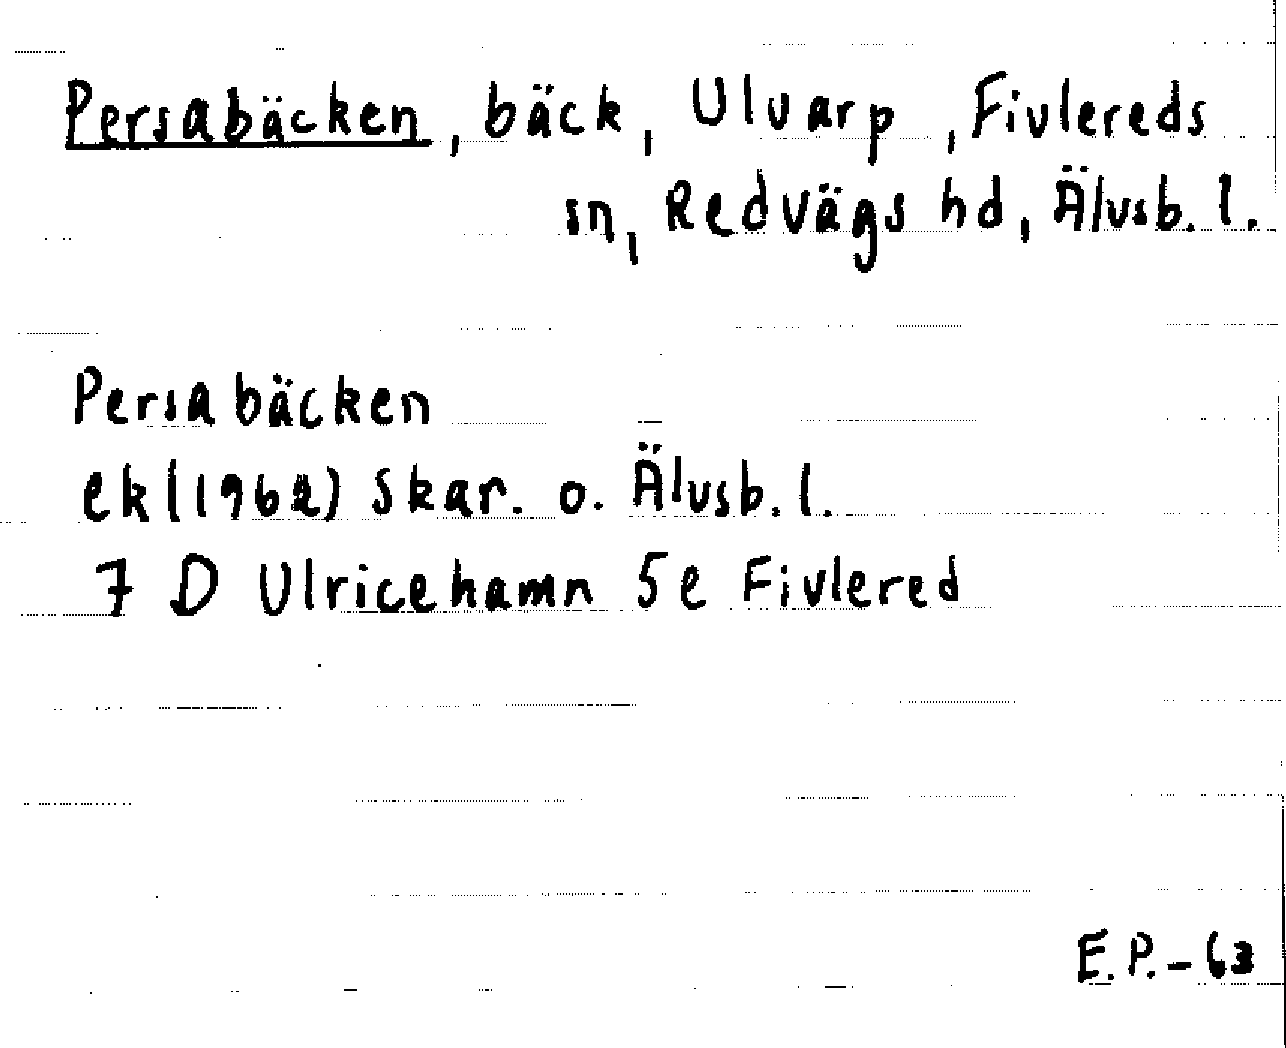 Persabäcken, bäck, Ulvarp, Fivlereds
sn, Redvägs hd, Älvsb. l.
Persabäcken
ek (1962) Skar. o. Älvsb. l.
7 D Ulricehamn 5e Fivlered
E.P.-63